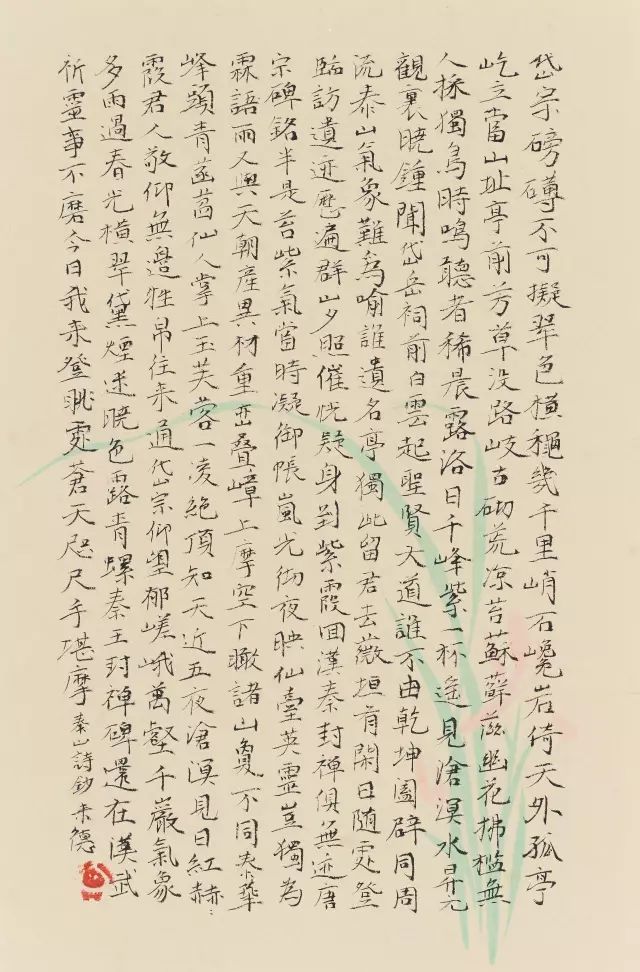 岱宗磅礡不可擬翠色橫穐幾千里峭石巉岩倚天外孤亭
屹立當山址亭前芳草没路歧古砌荒凉苔蘇蘚滋幽花拂檻無
人採獨鳥時鳴聽者稀晨露洛日千峰紫一杯遙見滄溟水昇元
觀裏曉鍾聞岱岳祠前白雲起聖賢大道誰不由乾坤闔辟同周
流泰山氣象難爲喻誰遺名亭獨此留君去薇垣肯閑日随雯登
臨訪遺迹歷遍群山夕照催恍疑身到紫霞囬漢秦封禪俱無迹唐
宗碑銘半是苔紫氣當時凝御帳嵐光彻夜映仙臺英靈豈獨為
霖語雨又與天朝産異材重巒叠嶂上摩空下瞰諸山夐不同泰華
峰頭青菡萏仙人掌上玉芙蓉一凌絶頂知天近五夜滄溟見日紅赫
霞君人敬仰無邊牲帛往来通岱宗仰望郁嵯峨萬壑千巖氣象
多雨過春光橫翠黛煙迷曉色露青螺秦王封禅碑還在漢武
祈靈事不磨今日我来登眺處蒼天咫尺手堪摩 泰山詩鈔 朱德